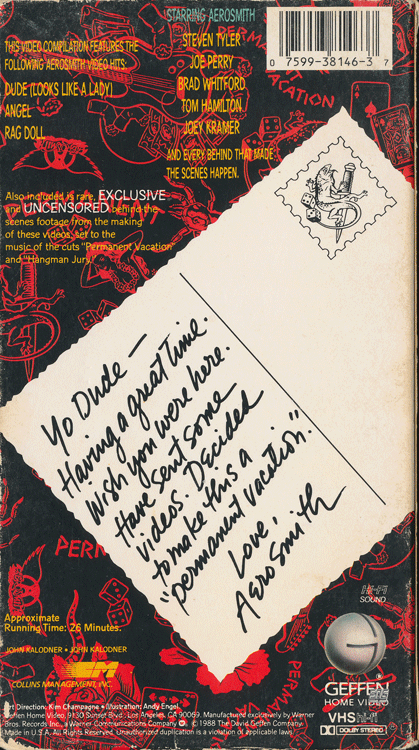 THIS VIDEO COMPILATION FEATURES THE
FOLLOWING AEROSMITH VIDEO HITS:
DUDE (LOOKS LIKE A LADY)
ANGEL
RAG DOLL
STARRING AEROSMITH
STEVEN TYLER
JOE PERRY
BRAD WHITFORD
TOM HAMILTON
JOEY KRAMER
AND EVERY BEHIND THAT MADE
THE SCENES HAPPEN.
0 7599-38146-3 7
Also included is rare, EXCLUSIVE
and UNCENSORED behind the
scenes footage from the making
of these videos, set to the
music of the cuts "Permanent Vacation"
and "Hangman Jury."
Yo Dude —
Having a great time.
Wish you were here.
Have sent some
videos. Decided
to make this a
"permanent vacation."
Love,
Aerosmith
Approximate
Running Time: 26 Minutes.
JOHN KALODNER • JOHN KALODNER
COLLINS MANAGEMENT, INC.
HI-FI
SOUND
GEFFEN
HOME VIDEO
VHS
DOLBY STEREO
Art Direction: Kim Champagne • Illustration: Andy Engel
Geffen Home Video, 9130 Sunset Blvd., Los Angeles, CA 90069. Manufactured exclusively by Warner
Bros. Records Inc., a Warner Communications Company. © 1988 The David Geffen Company.
Made in U.S.A. All Rights Reserved. Unauthorized duplication is a violation of applicable laws.